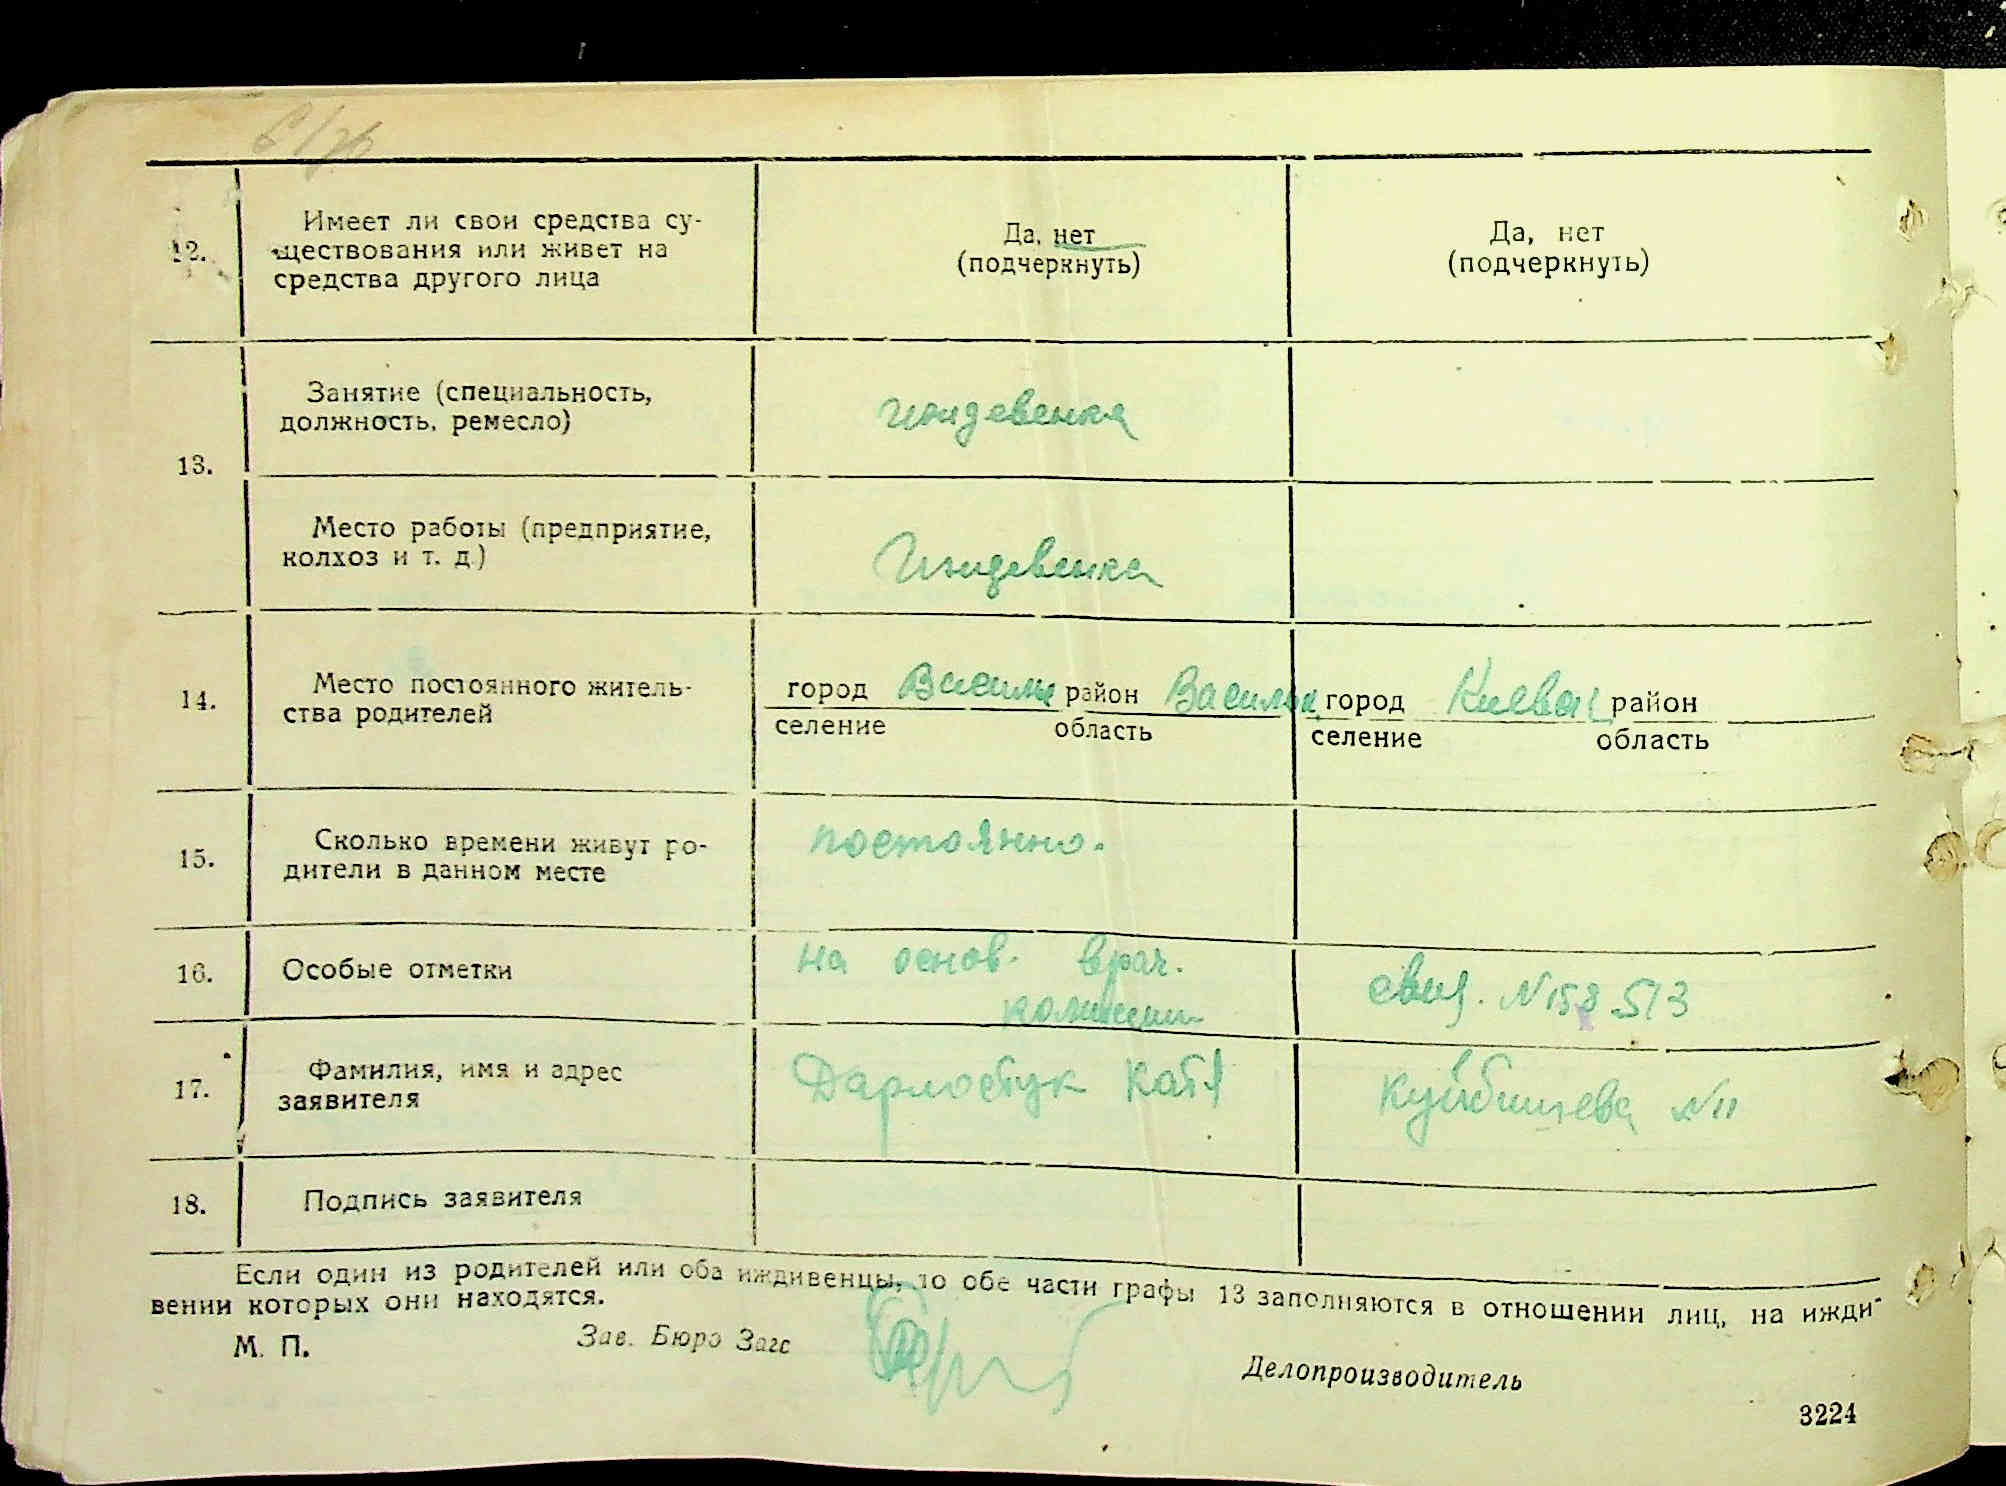 12.
Имеет ли свои средства су-
ществования или живет на
средства другого лица
Да, нет
(подчеркнуть)
Да, нет
(подчеркнуть)
13.
Занятие (специальность,
должность, ремесло)
иждевенка
Место работы (предприятие,
колхоз и т. д.)
Иждевенка
14.
Место постоянного житель-
ства родителей
город Васильк район Васильк
селение область
город Киевск район
селение область
15.
Сколько времени живут ро-
дители в данном месте
постоянно.
16.
Особые отметки
на основ. врач.
комиссии
свид. № 158513
17.
Фамилия, имя и адрес
заявителя
Катя
Куйбишева № 11
18.
Подпись заявителя
Если один из родителей или оба иждивенцы, то обе части графы 13 заполняются в отношении лиц, на ижди-
вении которых они находятся.
М. П.
Зав. Бюро Загс
Делопроизводитель
3224